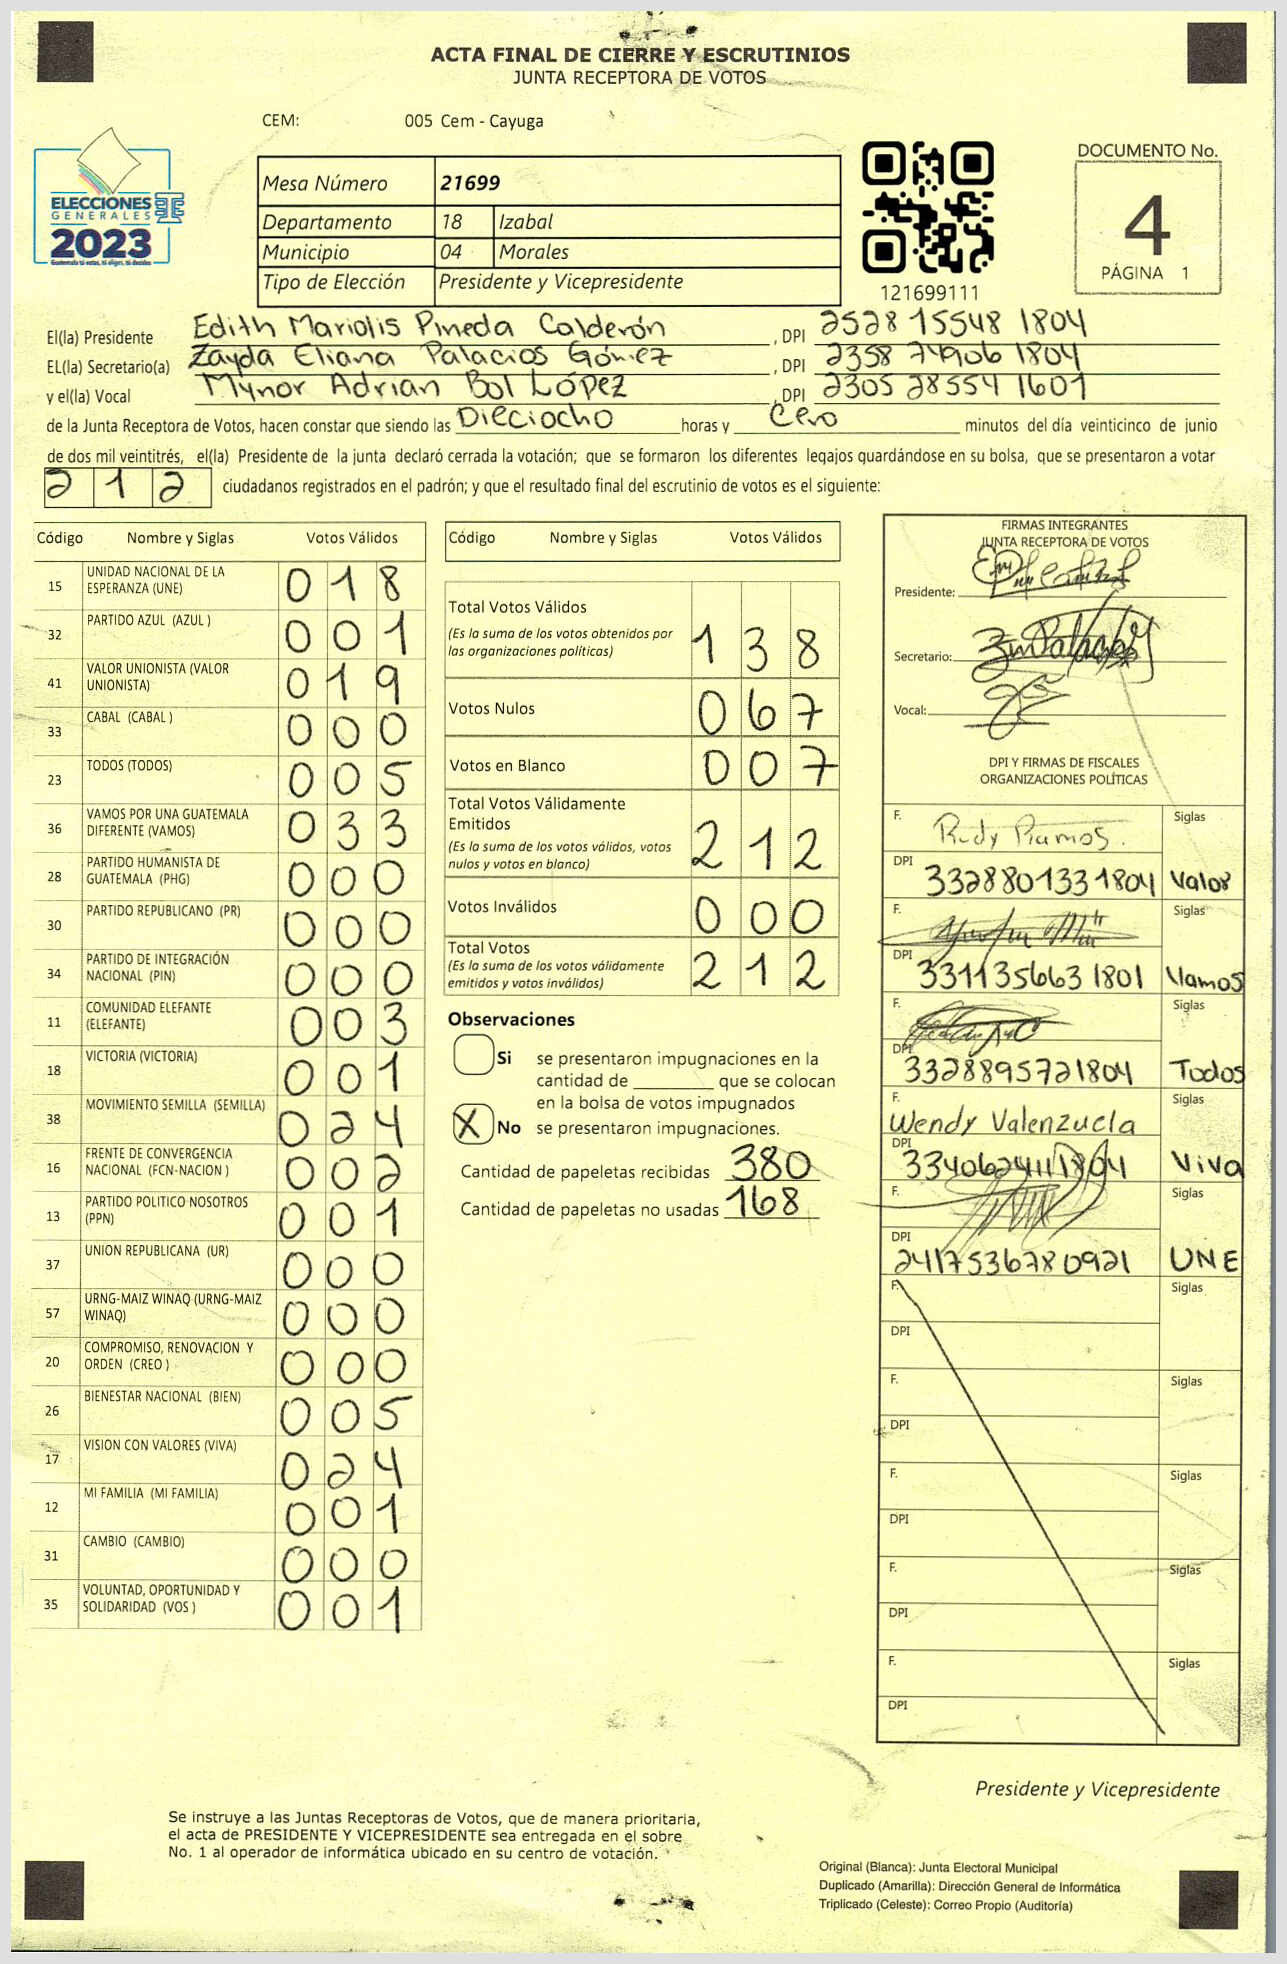 ACTA FINAL DE CIERRE Y ESCRUTINIOS
JUNTA RECEPTORA DE VOTOS
CEM: 005 Cem - Cayuga
ELECCIONES
GENERALES
2023
Guatemala tú votas, tú eliges, tú decides
Mesa Número 21699
Departamento 18 Izabal
Municipio 04 Morales
Tipo de Elección Presidente y Vicepresidente
121699111
DOCUMENTO No.
4
PÁGINA 1
El(la) Presidente Edith Mariolis Pineda Calderón , DPI 2528 15548 1804
EL(la) Secretario(a) Zayda Eliana Palacios Gómez , DPI 2358 74906 1804
y el(la) Vocal Mynor Adrian Bol López , DPI 2305 28554 1601
de la Junta Receptora de Votos, hacen constar que siendo las Dieciocho horas y Cero minutos del día veinticinco de junio
de dos mil veintitrés, el(la) Presidente de la junta declaró cerrada la votación; que se formaron los diferentes legajos guardándose en su bolsa, que se presentaron a votar
212 ciudadanos registrados en el padrón; y que el resultado final del escrutinio de votos es el siguiente:
Código Nombre y Siglas Votos Válidos
15 UNIDAD NACIONAL DE LA
ESPERANZA (UNE) 018
32 PARTIDO AZUL (AZUL ) 001
41 VALOR UNIONISTA (VALOR
UNIONISTA) 019
33 CABAL (CABAL ) 000
23 TODOS (TODOS) 005
36 VAMOS POR UNA GUATEMALA
DIFERENTE (VAMOS) 033
28 PARTIDO HUMANISTA DE
GUATEMALA (PHG) 000
30 PARTIDO REPUBLICANO (PR) 000
34 PARTIDO DE INTEGRACIÓN
NACIONAL (PIN) 000
11 COMUNIDAD ELEFANTE
(ELEFANTE) 003
18 VICTORIA (VICTORIA) 001
38 MOVIMIENTO SEMILLA (SEMILLA) 024
16 FRENTE DE CONVERGENCIA
NACIONAL (FCN-NACION ) 002
13 PARTIDO POLITICO NOSOTROS
(PPN) 001
37 UNION REPUBLICANA (UR) 000
57 URNG-MAIZ WINAQ (URNG-MAIZ
WINAQ) 000
20 COMPROMISO, RENOVACION Y
ORDEN (CREO ) 000
26 BIENESTAR NACIONAL (BIEN) 005
17 VISION CON VALORES (VIVA) 024
12 MI FAMILIA (MI FAMILIA) 001
31 CAMBIO (CAMBIO) 000
35 VOLUNTAD, OPORTUNIDAD Y
SOLIDARIDAD (VOS ) 001
Código Nombre y Siglas Votos Válidos
Total Votos Válidos
(Es la suma de los votos obtenidos por
las organizaciones políticas) 138
Votos Nulos 067
Votos en Blanco 007
Total Votos Válidamente
Emitidos
(Es la suma de los votos válidos, votos
nulos y votos en blanco) 212
Votos Inválidos 000
Total Votos
(Es la suma de los votos válidamente
emitidos y votos inválidos) 212
Observaciones
Si se presentaron impugnaciones en la
cantidad de ________ que se colocan
en la bolsa de votos impugnados
X No se presentaron impugnaciones.
Cantidad de papeletas recibidas 380
Cantidad de papeletas no usadas 168
FIRMAS INTEGRANTES
JUNTA RECEPTORA DE VOTOS
Presidente:
Secretario:
Vocal:
DPI Y FIRMAS DE FISCALES
ORGANIZACIONES POLÍTICAS
F. Rudy Ramos. Siglas
DPI 3328801331804 Valor
F. Siglas
DPI 331135663 1801 Vamos
F. Siglas
DPI 3328895721804 Todos
F. Wendy Valenzuela Siglas
DPI 3340624111804 Viva
F. Siglas
DPI 2417536780921 UNE
F. Siglas
DPI
F. Siglas
DPI
F. Siglas
DPI
F. Siglas
DPI
F. Siglas
DPI
Presidente y Vicepresidente
Se instruye a las Juntas Receptoras de Votos, que de manera prioritaria,
el acta de PRESIDENTE Y VICEPRESIDENTE sea entregada en el sobre
No. 1 al operador de informática ubicado en su centro de votación.
Original (Blanca): Junta Electoral Municipal
Duplicado (Amarilla): Dirección General de Informática
Triplicado (Celeste): Correo Propio (Auditoría)